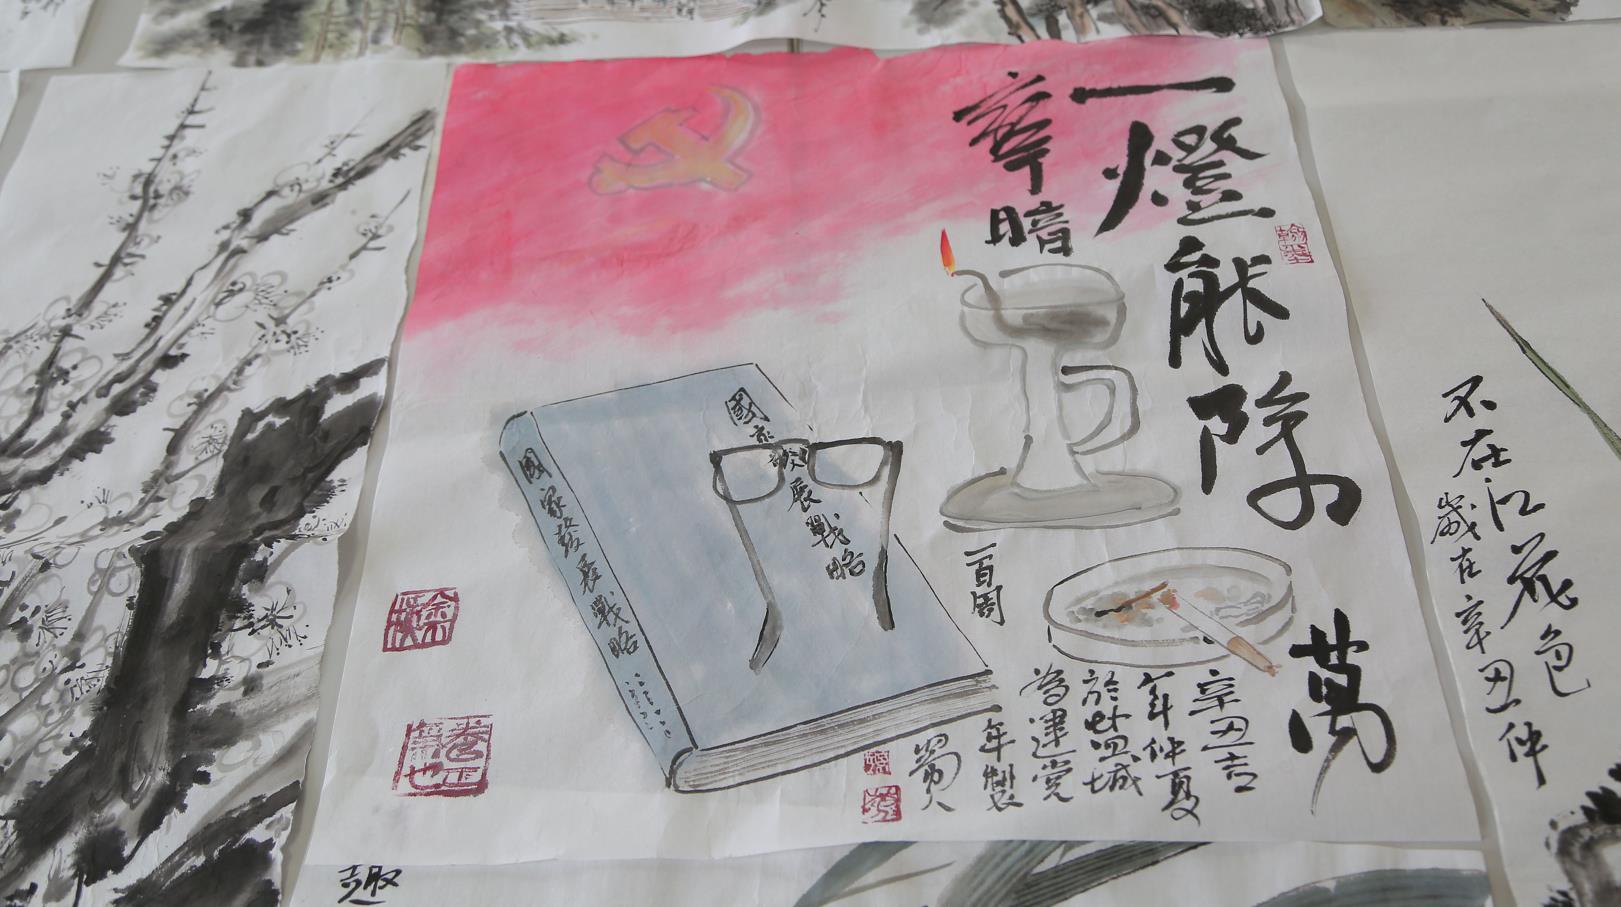 一燈能除萬
年暗
國家發展戰略
國家發展戰略
辛丑吉
年仲夏
於
城
為建党
一百周
年製
不在江花色
歲在辛丑仲
趣